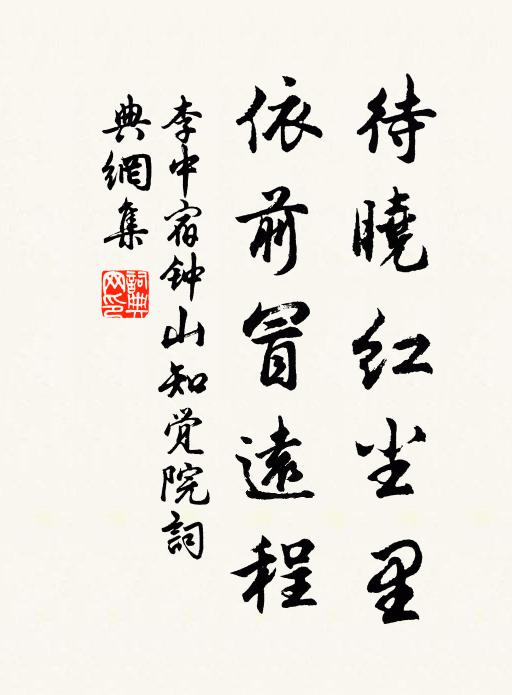 待曉红尘里
依前冒遠程
李中宿钟山知觉院詞
典網集
詞典
网印